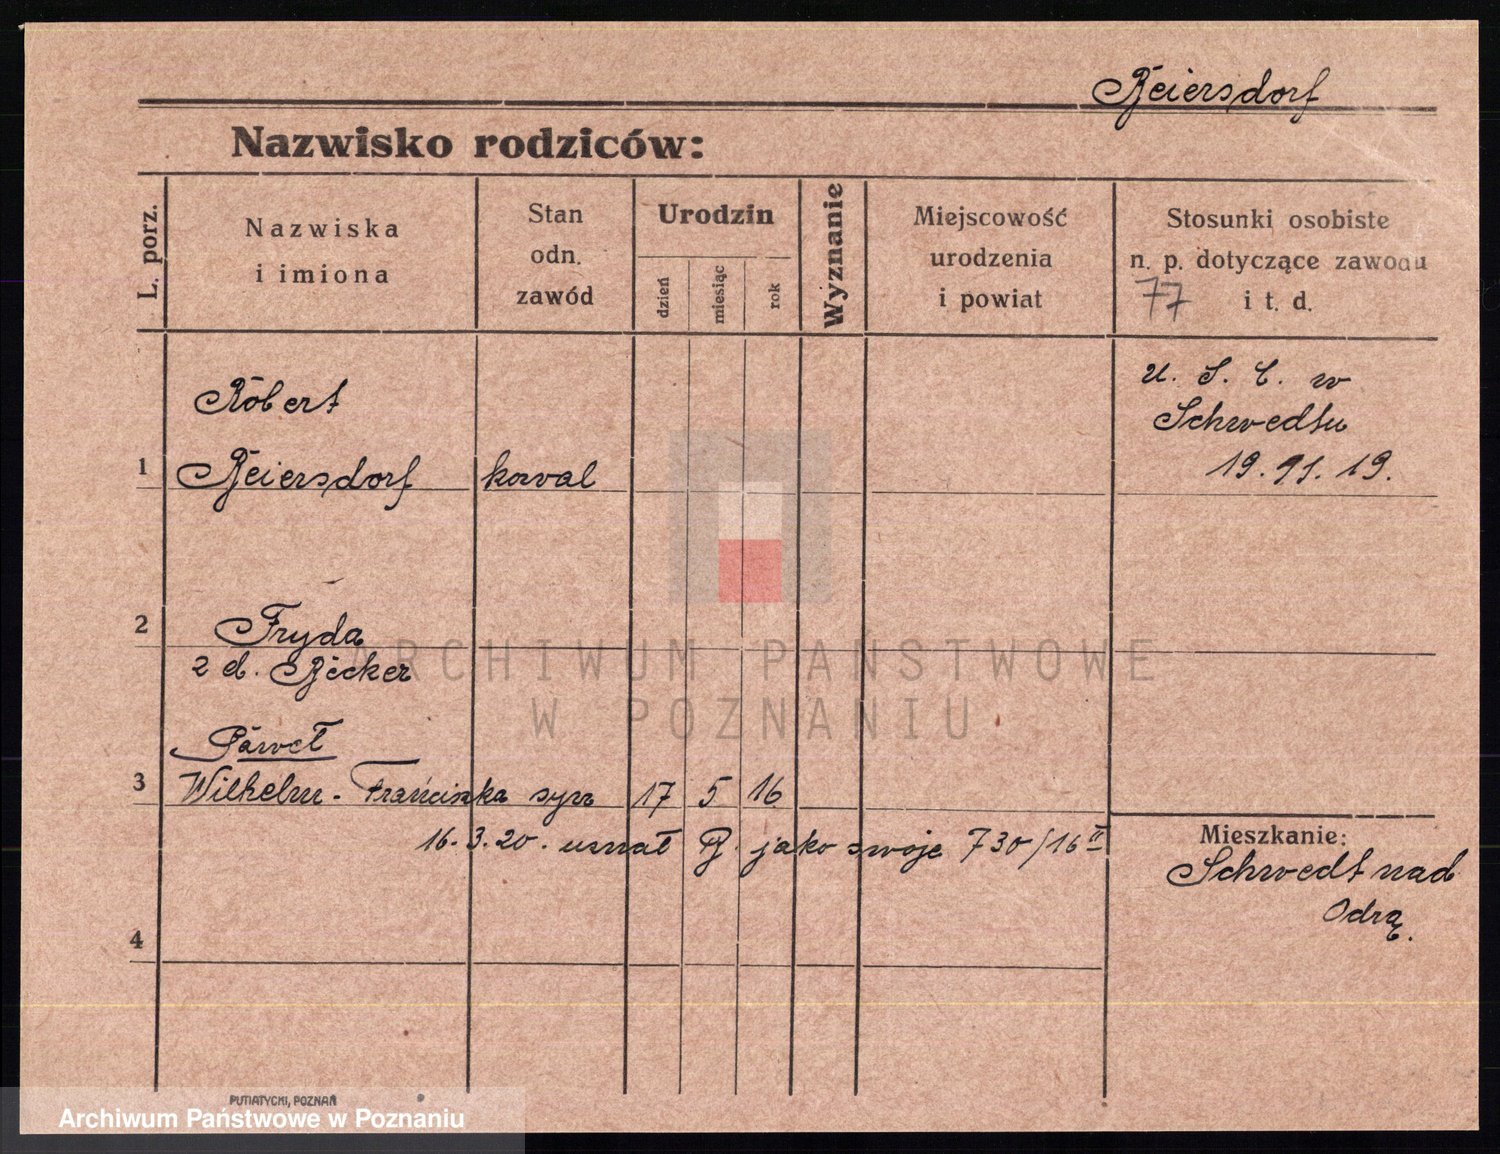 Beiersdorf
Nazwisko rodziców:
L. porz.
Nazwiska
i imiona
Stan
odn.
zawód
Urodzin
dzień
miesiąc
rok
Wyznanie
Miejscowość
urodzenia
i powiat
Stosunki osobiste
n. p. dotyczące zawodu
77 i t. d.
Robert
1 Beiersdorf kowal
U. S. C. w
Schwedtu
19. 11. 19.
2 Fryda
2 d. Becker
Paweł
3 Wilhelm - Franciszka syn 17 5 16
16. 3. 20. uznał B. jako swoje 730/16 II
Mieszkanie:
Schwedt nad
Odrą.
4
PUTIATYCKI, POZNAŃ
ARCHIWUM PAŃSTWOWE
W POZNANIU
Archiwum Państwowe w Poznaniu